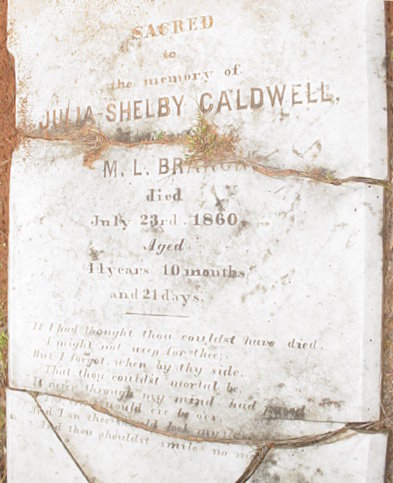 SACRED
to
the memory of
JULIA SHELBY CALDWELL,
M. L.
died
July 23rd. 1860.
Aged
11 years 10 months
and 21 days.
"If I had thought thou couldst have died,
I might not weep for thee;
But I forgot, when by thy side,
That thou couldst mortal be.
It never through my mind had
would ere be o'er
And I on thee look my
And thou shouldst smile no